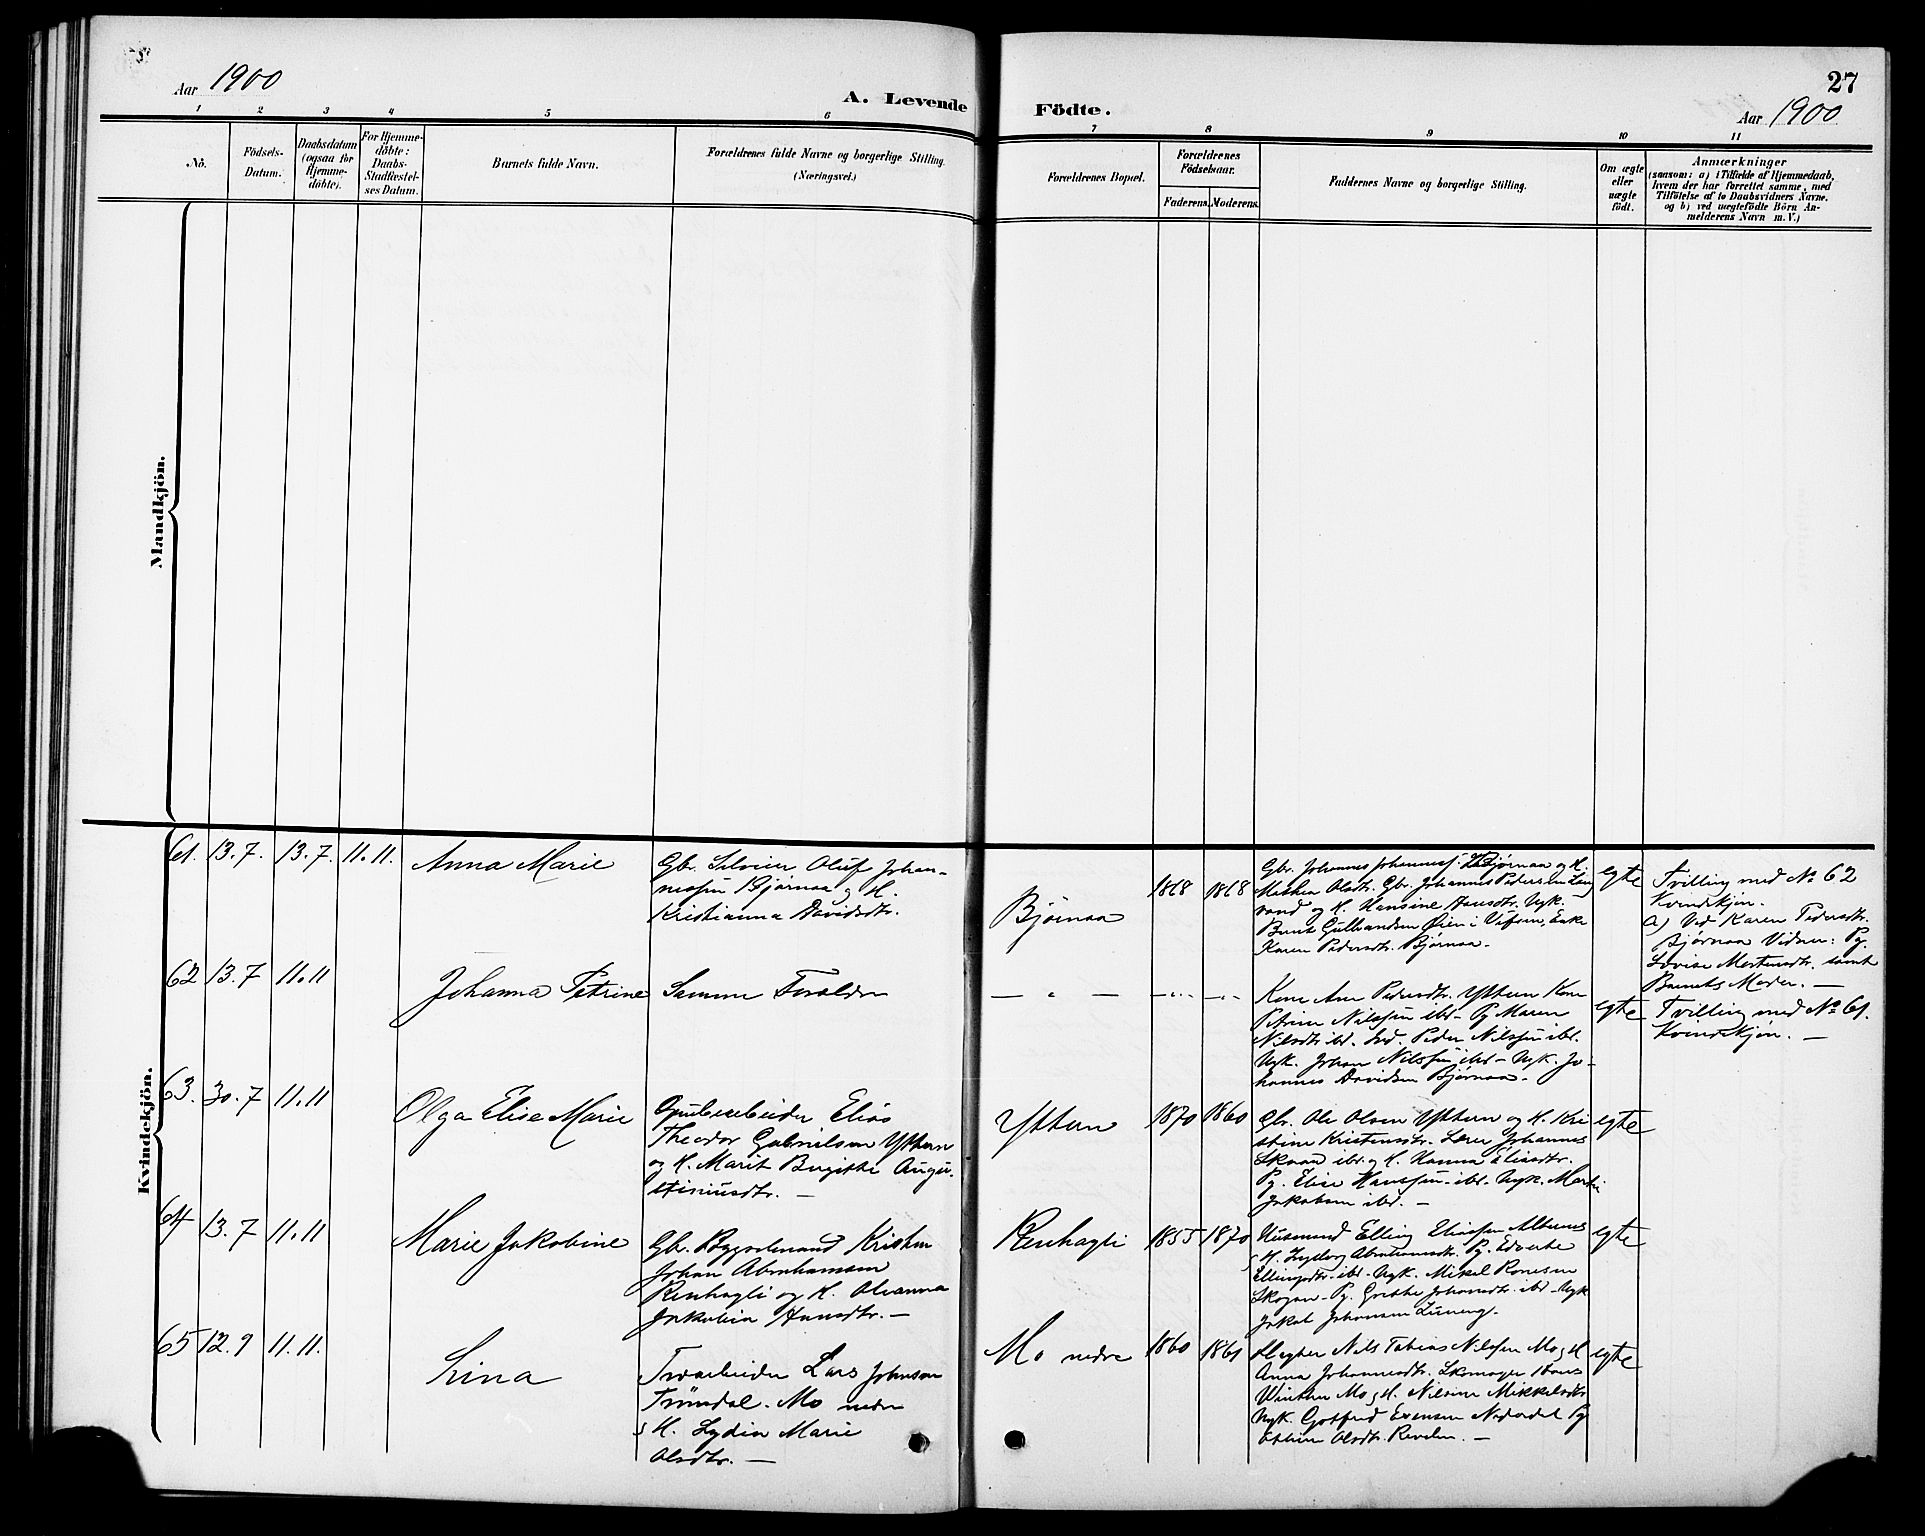 Aar 1900
A. Levende
Födte.
27
Aar 1900
1 2 3 4 5 6 7 8 9 10 11
No.
Födsels-
Datum.
Daabsdatum
(ogsaa for
Hjemme-
döbte).
For Hjemme-
döbte:
Daabs-
Stadfæstel-
ses Datum.
Barnets fulde Navn.
Forældrenes fulde Navne og borgerlige Stilling.
(Næringsvei.)
Forældrenes Bopæl.
Forældrenes
Födselsaar.
Faderens. Moderens.
Faddernes Navne og borgerlige Stilling.
Om ægte
eller
uægte
födt.
Anmærkninger
(saasom: a) i Tilfælde af Hjemmedaab,
hvem der har forrettet samme, med
Tilföielse af to Daabsvidners Navne.
og b) ved uægtefödte Börn An-
melderens Navn m. V.)
Mandkjön.
Kvindekjön.
61. 13.7. 13.7. 11.11.
Anna Marie
Gbr. Oluf Johan-
nessen Bjørnaa og H.
Kristianna Davidsdtr.
Bjørnaa
1868 1868
Gbr. Johannes Johanness. Bjørnaa og H.
Olsdtr. Gbr. Johannes Pedersen
og H. Hansine Hansdtr. Ungk.
Øien i Vefsen, Enke
Karen Pedersdtr. Bjørnaa.
egte
Tvilling med No 62
Kvindekjøn.
a) Ved Karen Pedersdtr.
Bjørnaa Vidner: Pg.
Lovise Mortensdtr. samt
Barnets Moder. —
62 13.7 11.11
Johanna Petrine
Samme Forældre
— " — — " — — " —
Kone Ane Pedersdtr. Ytteren Kone
Petrine Nilssen ibd. Pg. Maren
Nilsdtr ibd. Peder Nilssen ibd.
Ungk. Johan Nilssen ibd. Ungk. Jo-
hannes Davidsen Bjørnaa.
egte
Tvilling med No 61.
Kvindekjøn. —
63. 30.7 11.11
Olga Elise Marie
Grubearbeider Elias
Theodor Gabrielsen Ytteren
og H. Marit Birgitte Augu-
stinusdtr. —
Ytteren
1870 1860
Gbr. Ole Olsen Ytteren og H. Kri
stine Kristensdtr. Lærer Johannes
ibd. og H. Hanna Eliasdtr.
Pg. Elise Hanssen ibd. Ungk. Martin
Jakobsen ibd. —
egte
64 13.7 11.11
Marie Jakobine
Gb. Bygselmand Kristen
Johan Abrahamsen
Renhagli og H. Olvanna
Jakobine Hansdtr. —
Renhagli
1855 1870
Husmand Elling Eliassen Alternes
H. Abrahamsdtr. Pg. Edvarda
Ellingsdtr. ibd. Ungk. Mikal
Skogen. Pg. Grethe Johansdtr. ibd. Ungk
Jakob Johansen
egte
65 12.9 11.11.
Lina
Lars Johnson
Trøndal. Mo nedre
H. Lydia Marie
Olsdtr. —
Mo nedre
1860 1861
Nils Tobias Nilssen Mo H
Anna Johannesdtr. Skomager Hans
Winther Mo H. Nilsine Mikkelsdtr
Ungk. Gotfred Evensen Pg
Olsdtr. Revelen. —
egte